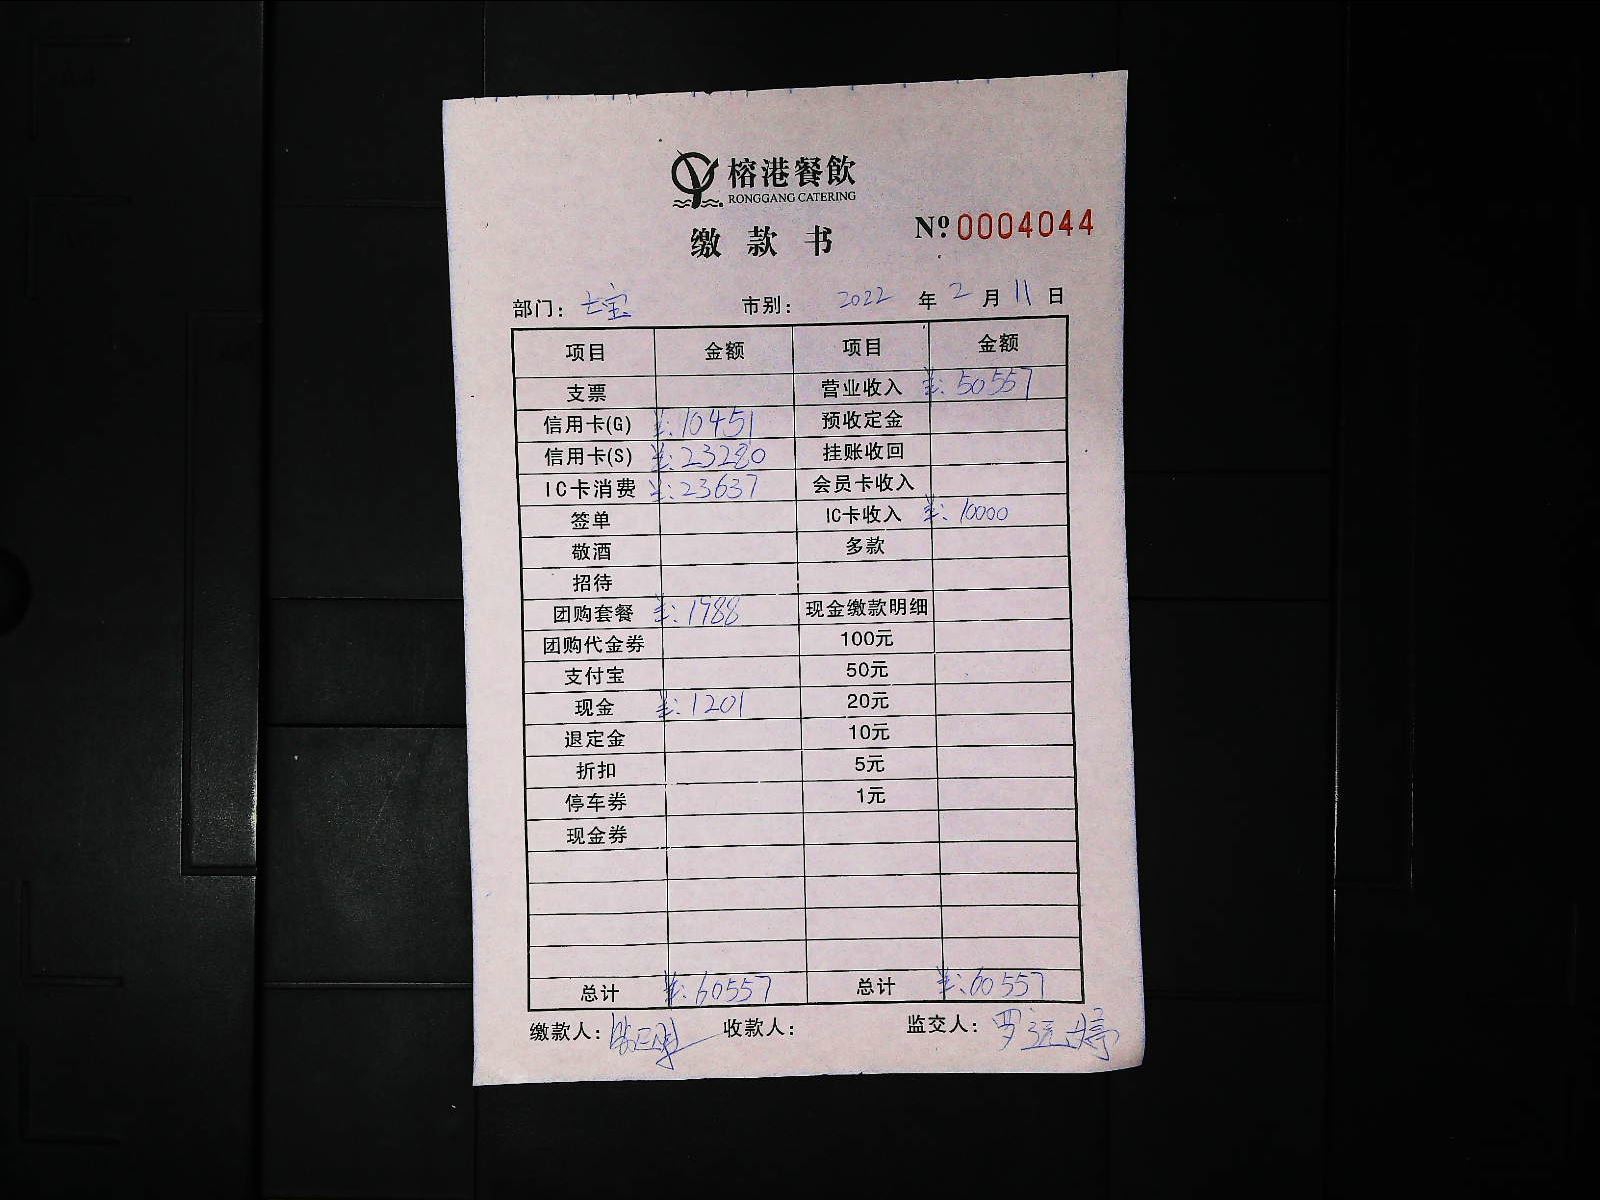 榕港餐飲
RONGGANG CATERING
缴款书 Nº 0004044
部门：七宝 市别： 2022 年 2 月 11 日
项目 金额 项目 金额
支票 营业收入 ¥:50557
信用卡(G) ¥:10451 预收定金
信用卡(S) ¥:23280 挂账收回
IC卡消费 ¥:23637 会员卡收入
签单 IC卡收入 ¥:10000
敬酒 多款
招待
团购套餐 ¥:1988 现金缴款明细
团购代金券 100元
支付宝 50元
现金 ¥:1201 20元
退定金 10元
折扣 5元
停车券 1元
现金券
总计 ¥:60557 总计 ¥:60557
缴款人： 收款人： 监交人：